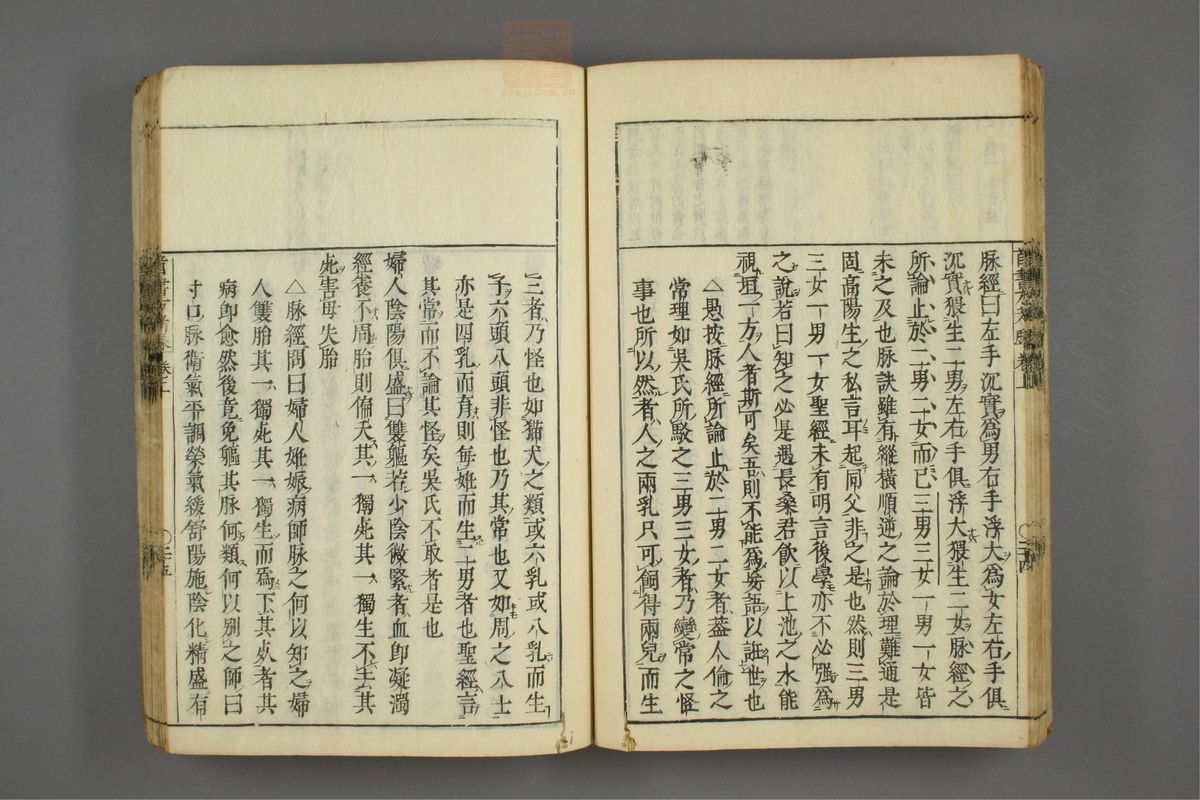 脉經曰左手沉實爲男右手浮大爲女左右手俱
沉實猥生二男左右手俱浮大猥生二女脉經之
所論止於二男二女而已三男三女一男一女皆
未之及也脉訣雖有縱橫順逆之論於理難通是
固高陽生之私言耳起同父非之是也然則三男
三女一男一女聖經未有明言後學亦不必强爲
之說若曰知之必是遇長桑君飲以上池之水能
視垣一方人者斯可矣吾則不能爲妄語以誑世也
△愚按脉經所論止於二男二女者蓋人倫之
常理如吳氏所駁之三男三女者乃變常之怪
事也所以然者人之兩乳只可飼得兩兒而生
三者乃怪也如猫犬之類或六乳或八乳而生
子六頭八頭非怪也乃其常也又如周之八士
亦是四乳而育則每姙而生二男者也聖經言
其常而不論其怪矣吳氏不取者是也
婦人陰陽俱盛曰雙軀若少陰微緊者血卽凝濁
經養不周胎則偏夭其一獨死其一獨生不去其
死害母失胎
△脉經問曰婦人姙娠病師脉之何以知之婦
人雙胎其一獨死其一獨生而爲下其死者其
病卽愈然後竟免軀其脉何類何以别之師曰
寸口脉衛氣平調榮氣緩舒陽施陰化精盛有